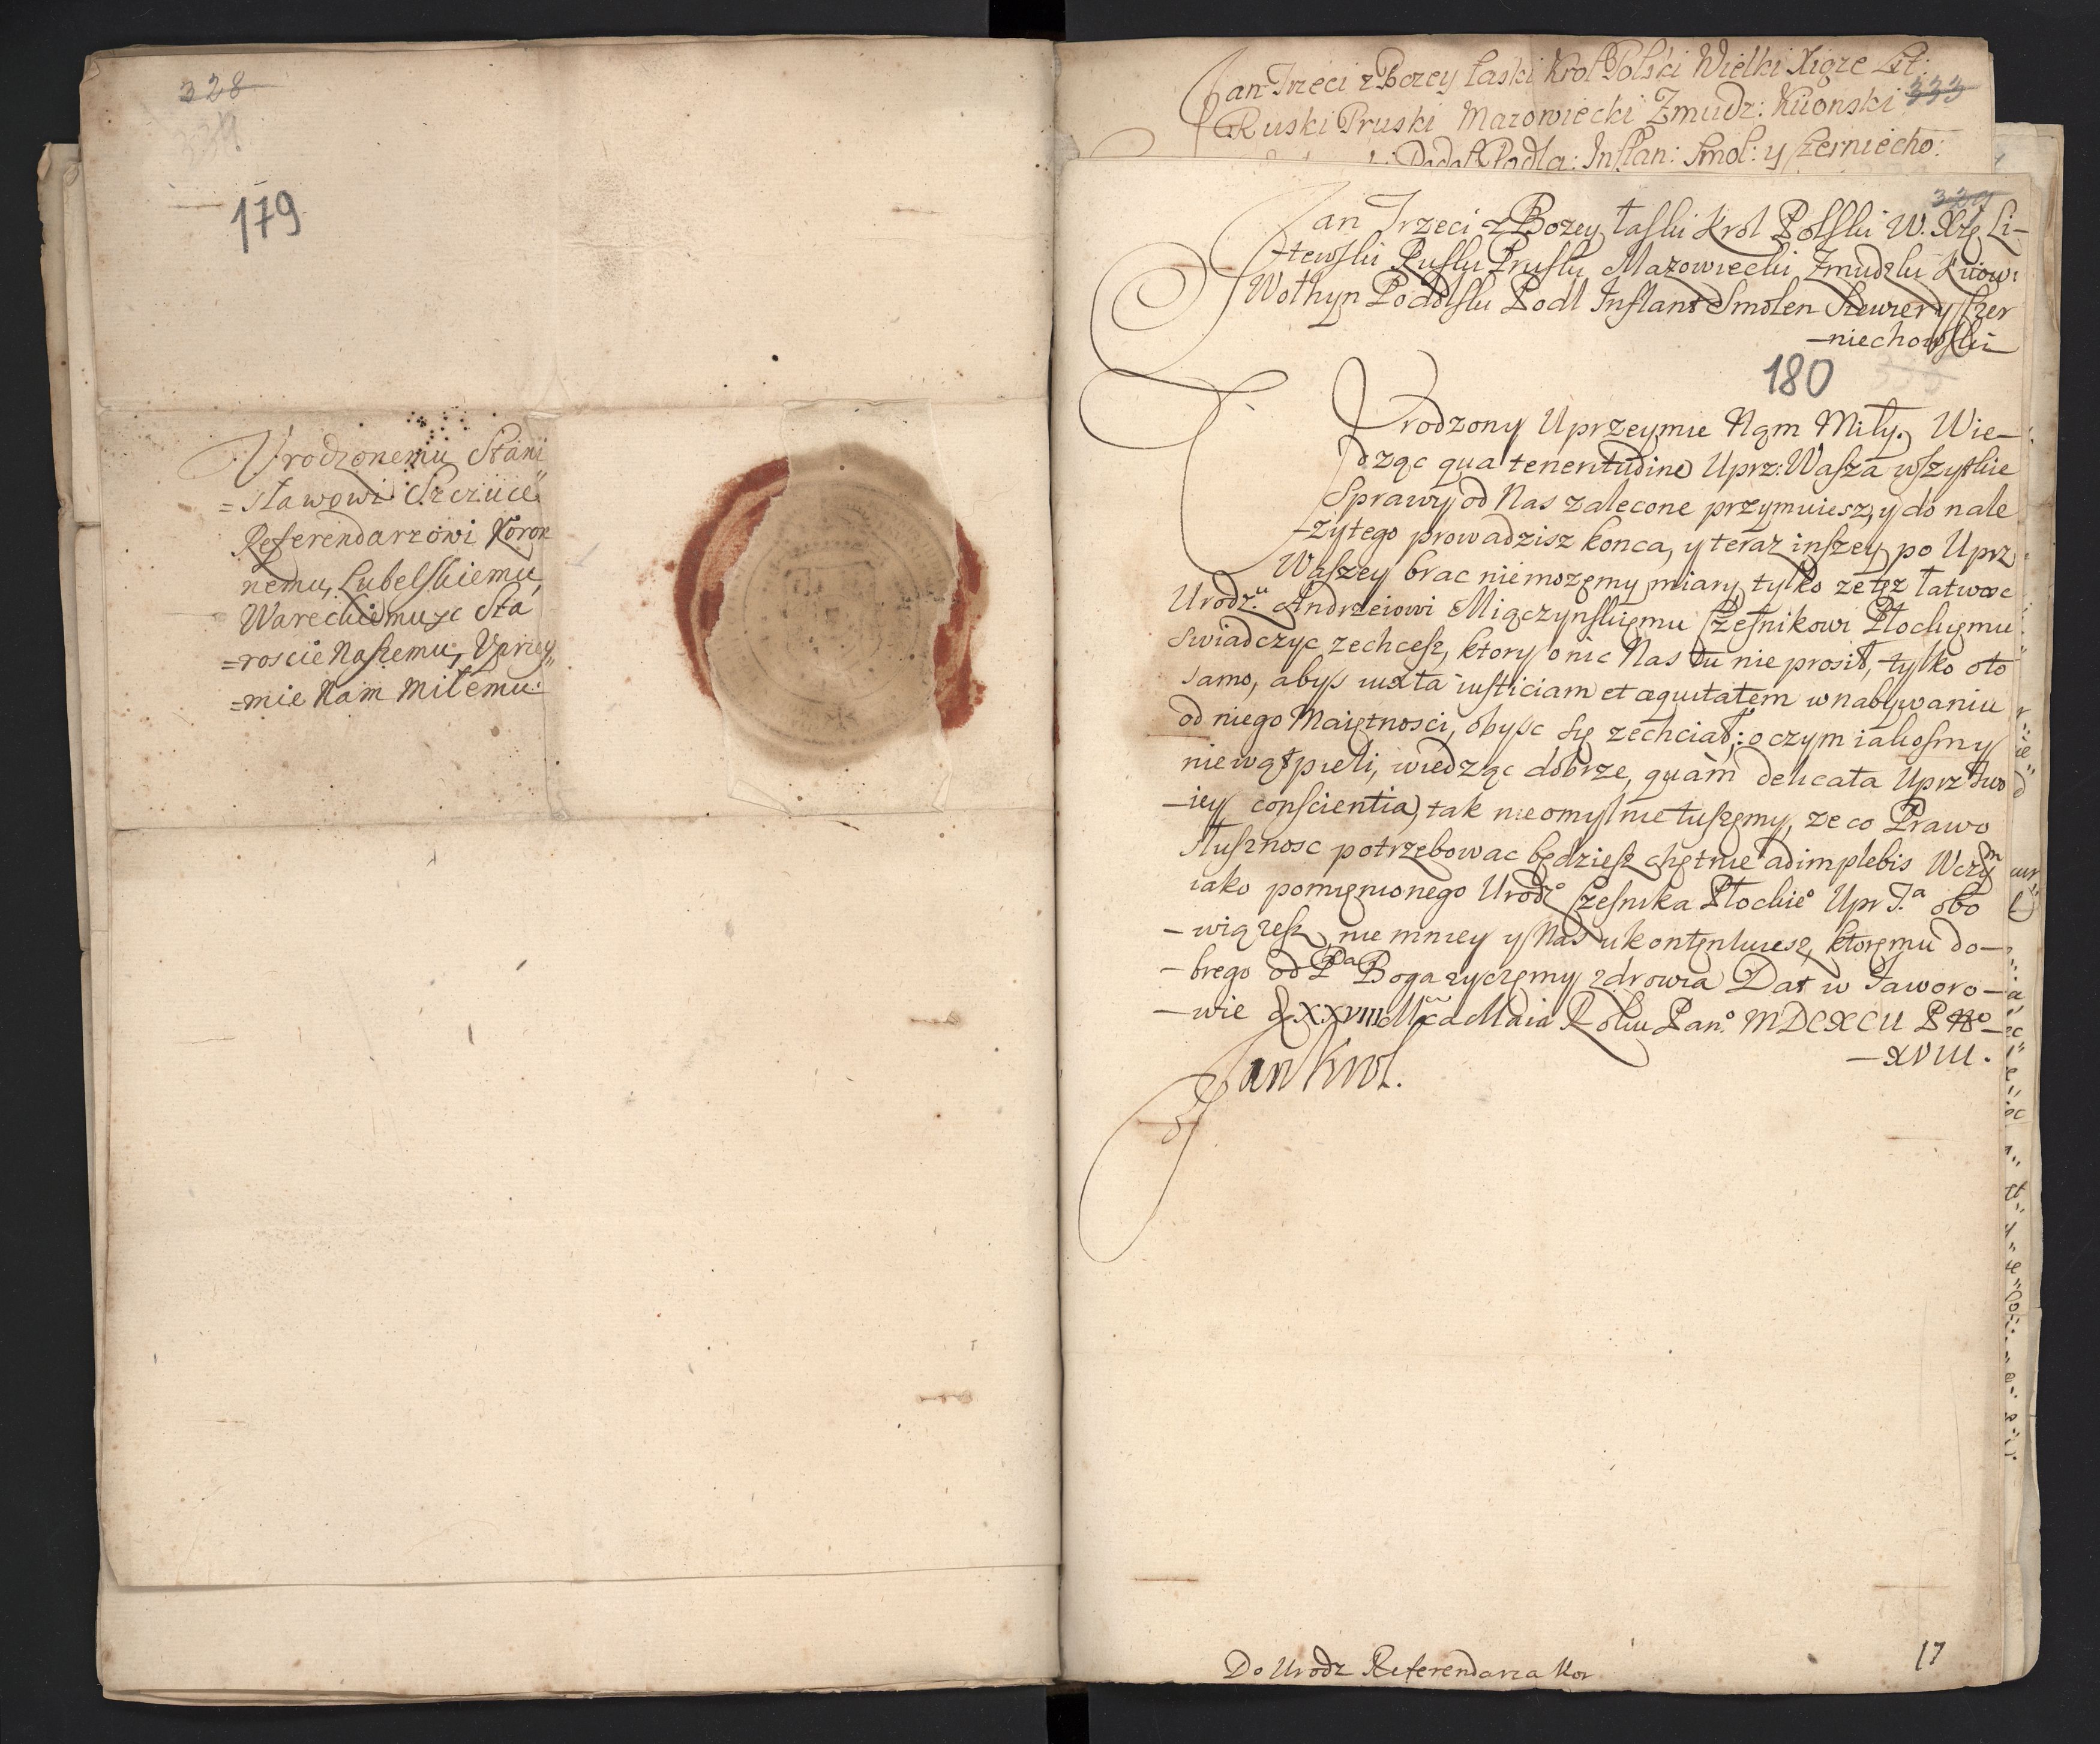 328
179
Urodzonemu Stani
=sławowi Szczuce
Referendarzowi Koron
nemu, Lubelskiemu,
Wareckiemu &c Sta
=roscie Naszemu, Uprzey
=mie Nam Miłemu:
Jan Trzeci z Bozey Łaski Krol Polski Wielki Xiąze Lit:
Ruski Pruski Mazowiecki Zmudz: Kiionski 333
Podol Podla: Inflan: Smol: y Czerniecho:
329
Jan Trzeci z Bozey Łaski Krol Polski W. Xże Li-
-tewski Ruski Pruski Mazowiecki Zmudzki Kiiow:
Wołhyn Podolski Podl Inflant Smolen Siewier y Czer
-niechowski
180
Urodzony Uprzeymie Nąm Miły. Wie-
dząc qua tenentudine Uprz: Wasza wszytkie
Sprawy od Nas zalecone przymuiesz, y do nale
-zytego prowadzisz konca, y teraz inszey po Uprz
Waszey brac niemozęmy miary, tylko ze tęz łatwosc
Urodz:u Andrzeiowi Miączynskięmu Czesnikowi Płockięmu
swiadczyc zechcesz, ktory o nic Nas tu nie prosił, tylko oto
samo, abys iuxta iusticiam et æquitatem w nabywaniu
od niego Maiętnosci, obysc się zechciał: o czym iakosmy
niewątpieli, wiedząc dobrze, quàm delicata Uprz Two
-iey conscientia, tak nieomylnie tuszęmy, ze co Prawo
Słusznosc potrzebowac będziesz chętnie adimplebis Wczym
iako pomięnionego Urodz:o Czesnika Płockie:o Upr T.a obo
-wiązesz, nie mniey y Nas ukontęntuiesz, ktoręmu do-
-brego od Pa Boga zyczęmy zdrowia Dat w Jaworo-
-wie d XXVIII Mca Maia Roku Pan:o MDCXCII P No
-XVIII.
Jan Krol.
Do Urodz Referendarza Kor
17